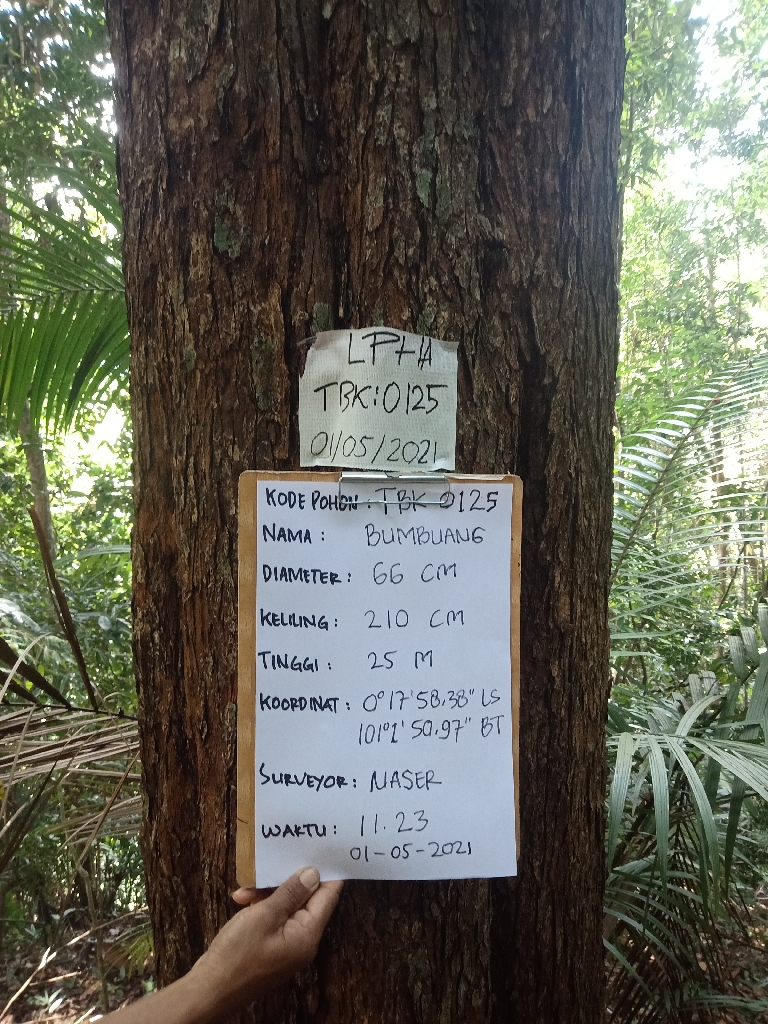 LPHA
TBK:0125
01/05/2021
KODE POHON : TBK 0125
NAMA : BUMBUANG
DIAMETER : 66 CM
KELILING : 210 CM
TINGGI : 25 M
KOORDINAT : 0°17'58.38" LS
101°1'50.97" BT
SURVEYOR : NASER
WAKTU : 11.23
01-05-2021